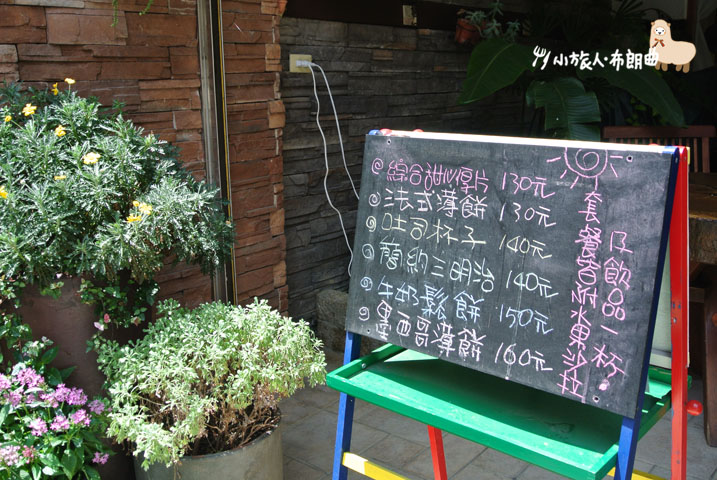 小旅人·布朗曲
綜合甜心厚片 130元
法式薄餅 130元
吐司杯子 140元
簡約三明治 140元
牛奶鬆餅 150元
墨西哥薄餅 160元
套餐皆附水果沙拉
飲品一杯